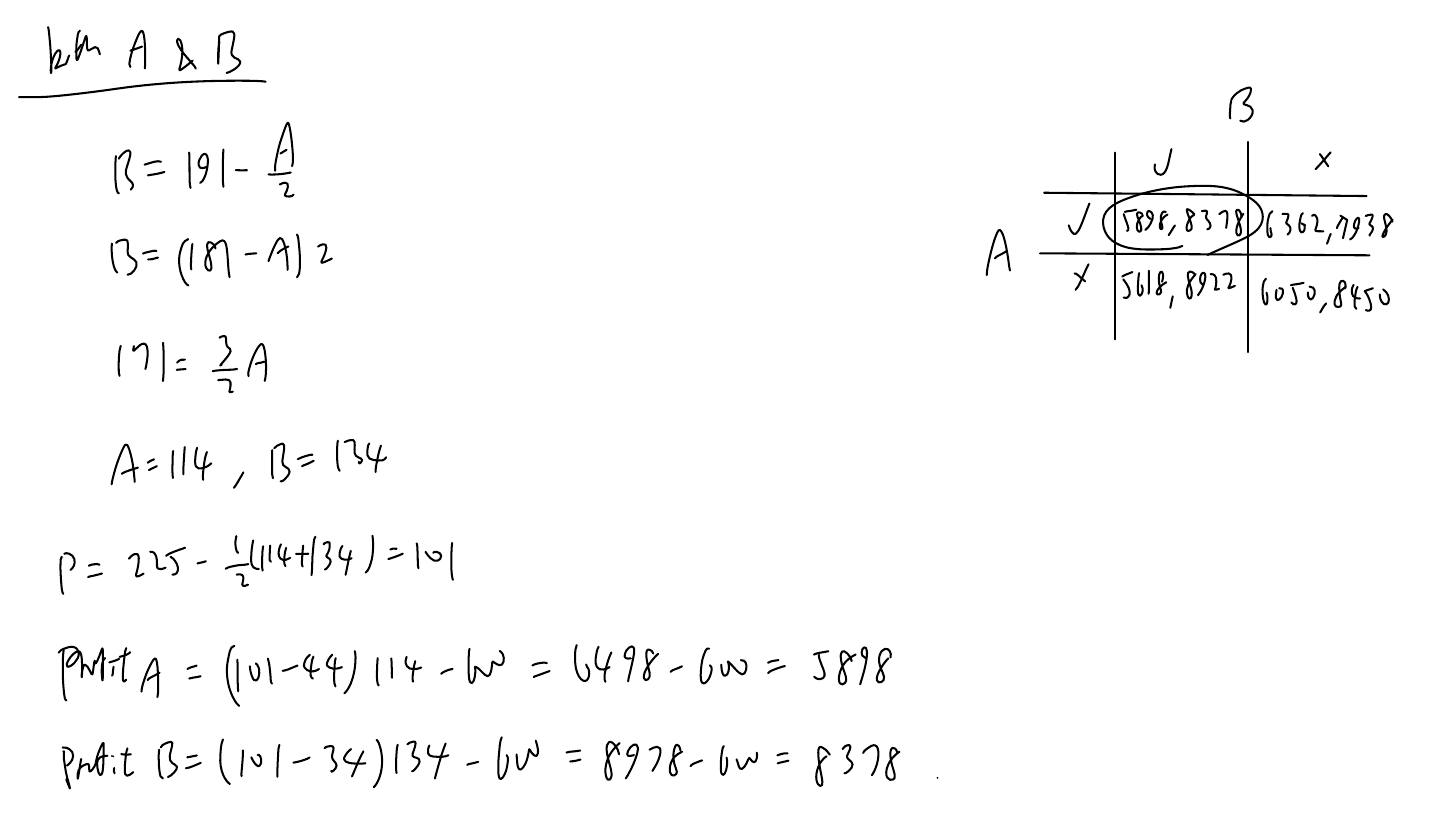 both A & B
B = 191 - A/2
B = (187 - A) 2
171 = 3/2 A
A = 114 , B = 134
P = 225 - 1/2 (114+134) = 101
Profit A = (101-44) 114 - 600 = 6498 - 600 = 5898
Profit B = (101-34) 134 - 600 = 8978 - 600 = 8378 .
B
✓ ×
A ✓ 5898, 8378 6362, 7938
× 5618, 8922 6050, 8450